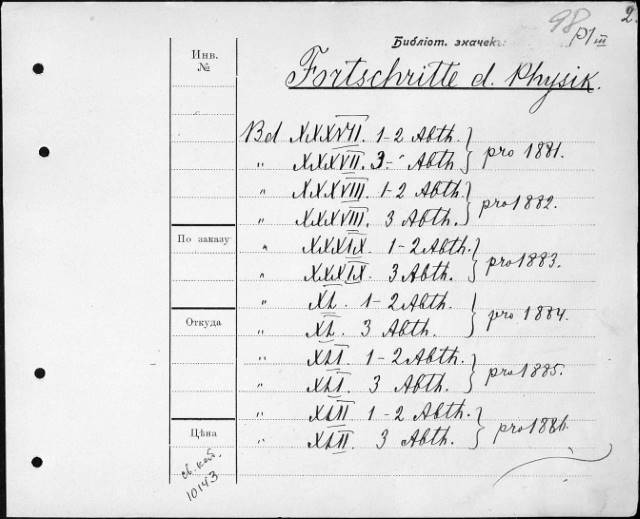 98 2
Библіот. значекъ P/III
Инв. №
Fortschritte d. Physik.
Bd XXXVII. 1-2 Abth. } pro 1881.
" XXXVII. 3- Abth
" XXXVIII. 1-2 Abth. } pro 1882.
" XXXVIII. 3 Abth.
По заказу
" XXXIX. 1-2 Abth. } pro 1883.
" XXXIX. 3 Abth.
" XL. 1-2 Abth. } pro 1884.
Откуда
" XL. 3 Abth.
" XLI 1-2 Abth. } pro 1885.
" XLI. 3 Abth.
" XLII 1-2 Abth. } pro 1886.
Цѣна
" XLII. 3 Abth.
10143